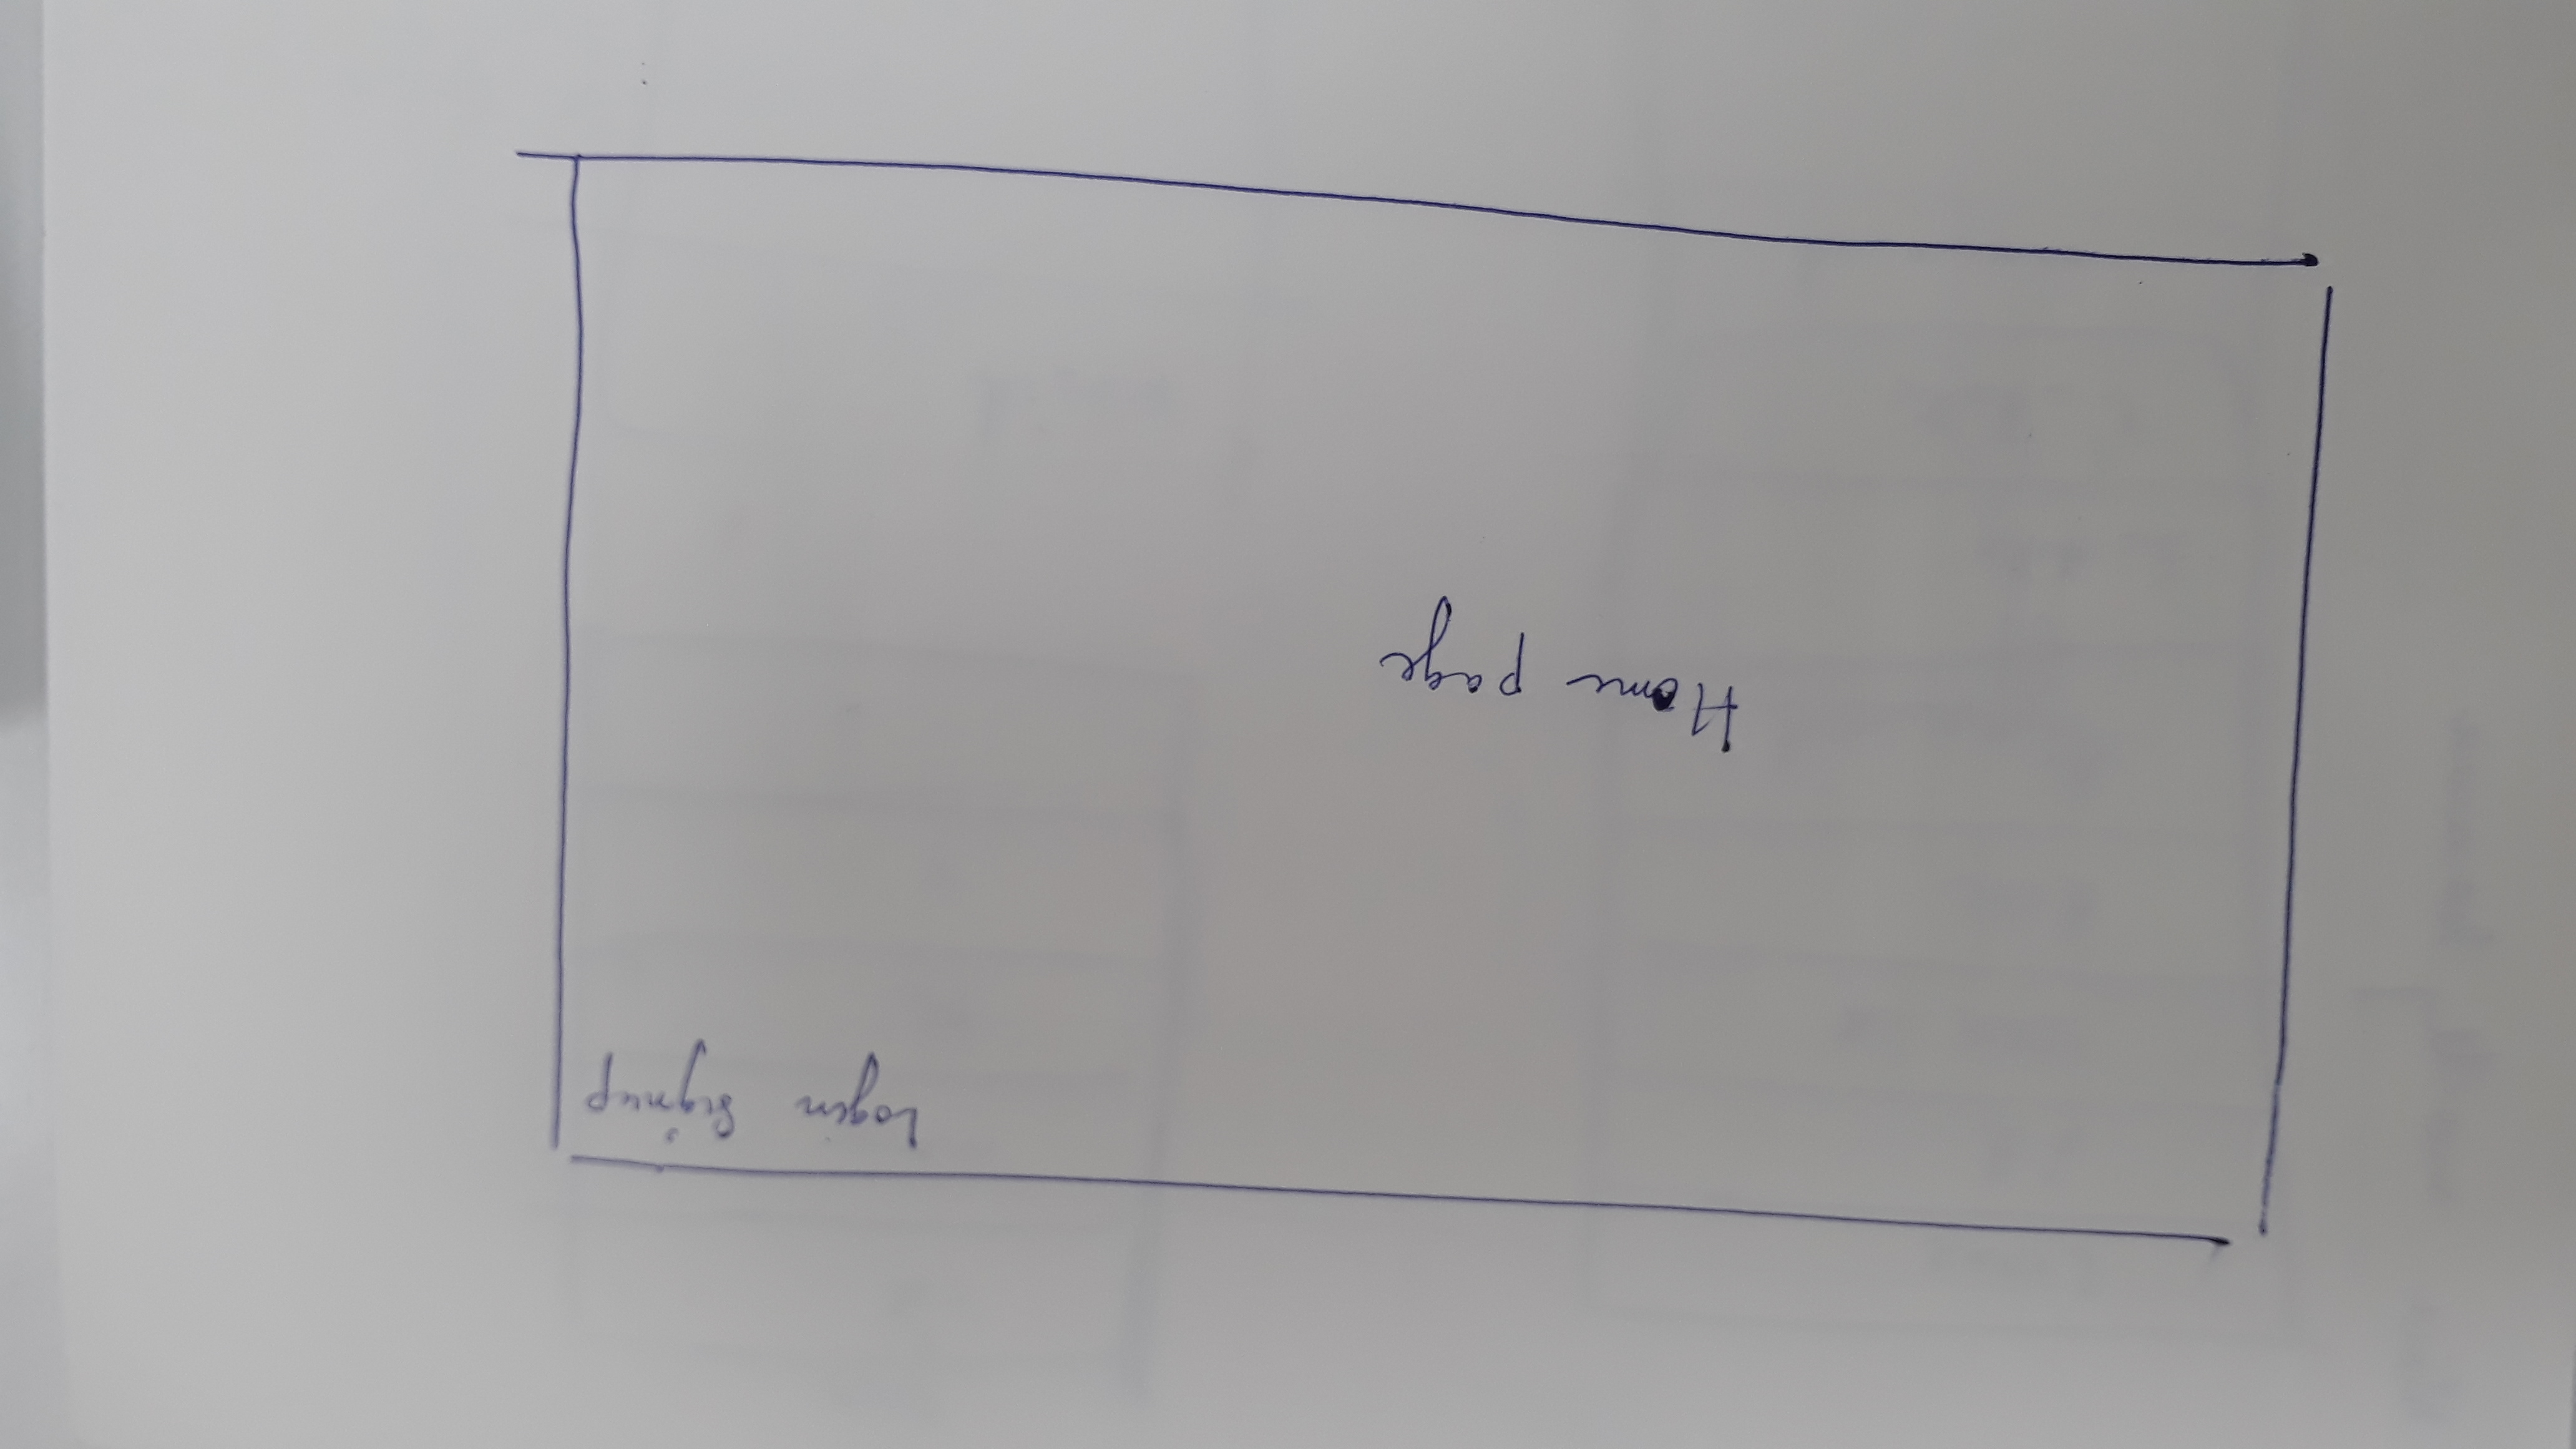 Login Signup
Home page